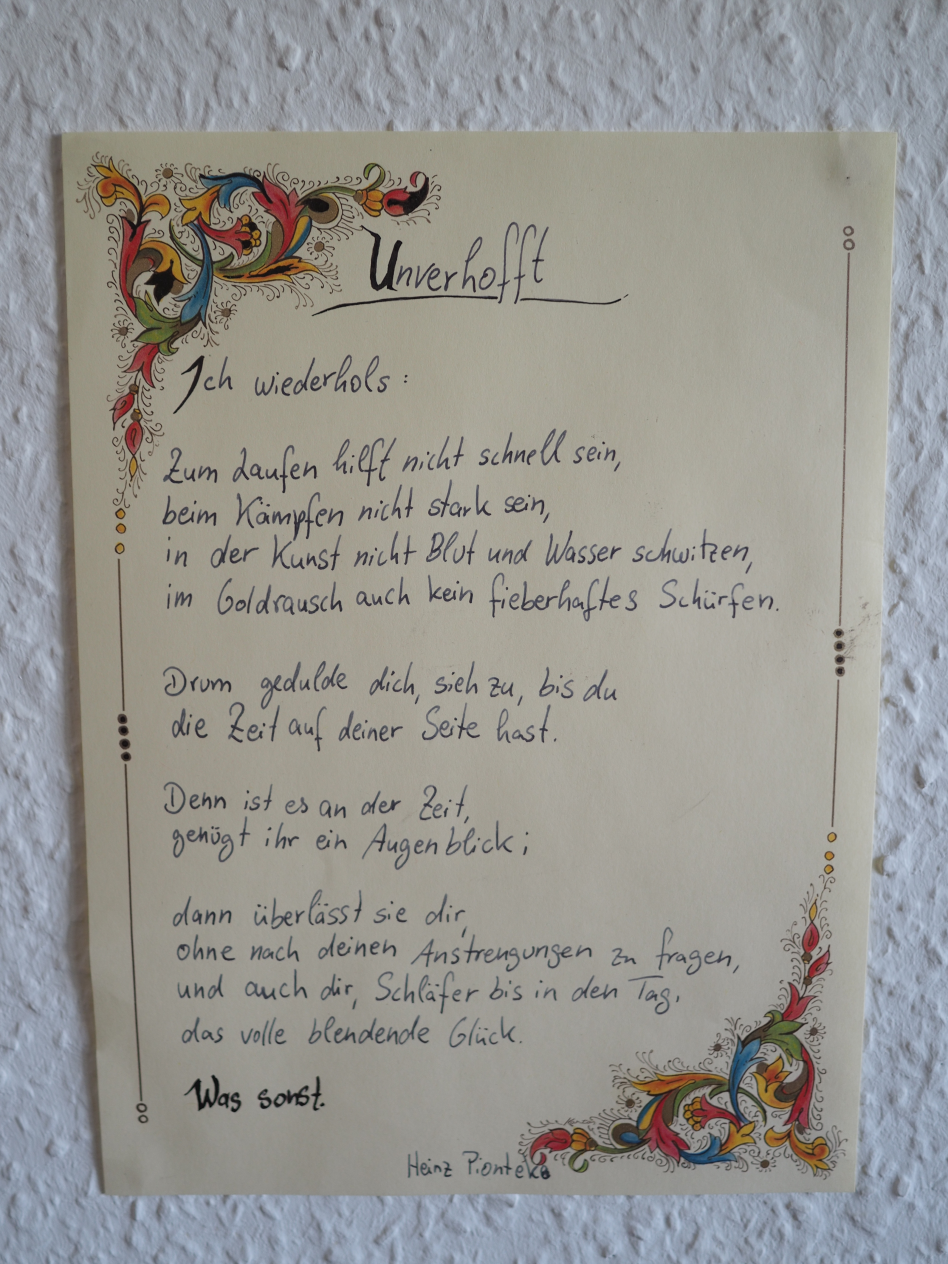 Unverhofft
Ich wiederhols:
Zum Laufen hilft nicht schnell sein,
beim Kämpfen nicht stark sein,
in der Kunst nicht Blut und Wasser schwitzen,
im Goldrausch auch kein fieberhaftes Schürfen.
Drum gedulde dich, sieh zu, bis du
die Zeit auf deiner Seite hast.
Denn ist es an der Zeit,
genügt ihr ein Augenblick;
dann überlässt sie dir,
ohne nach deinen Anstrengungen zu fragen,
und auch dir, Schläfer bis in den Tag,
das volle blendende Glück.
Was sonst.
Heinz Piontek